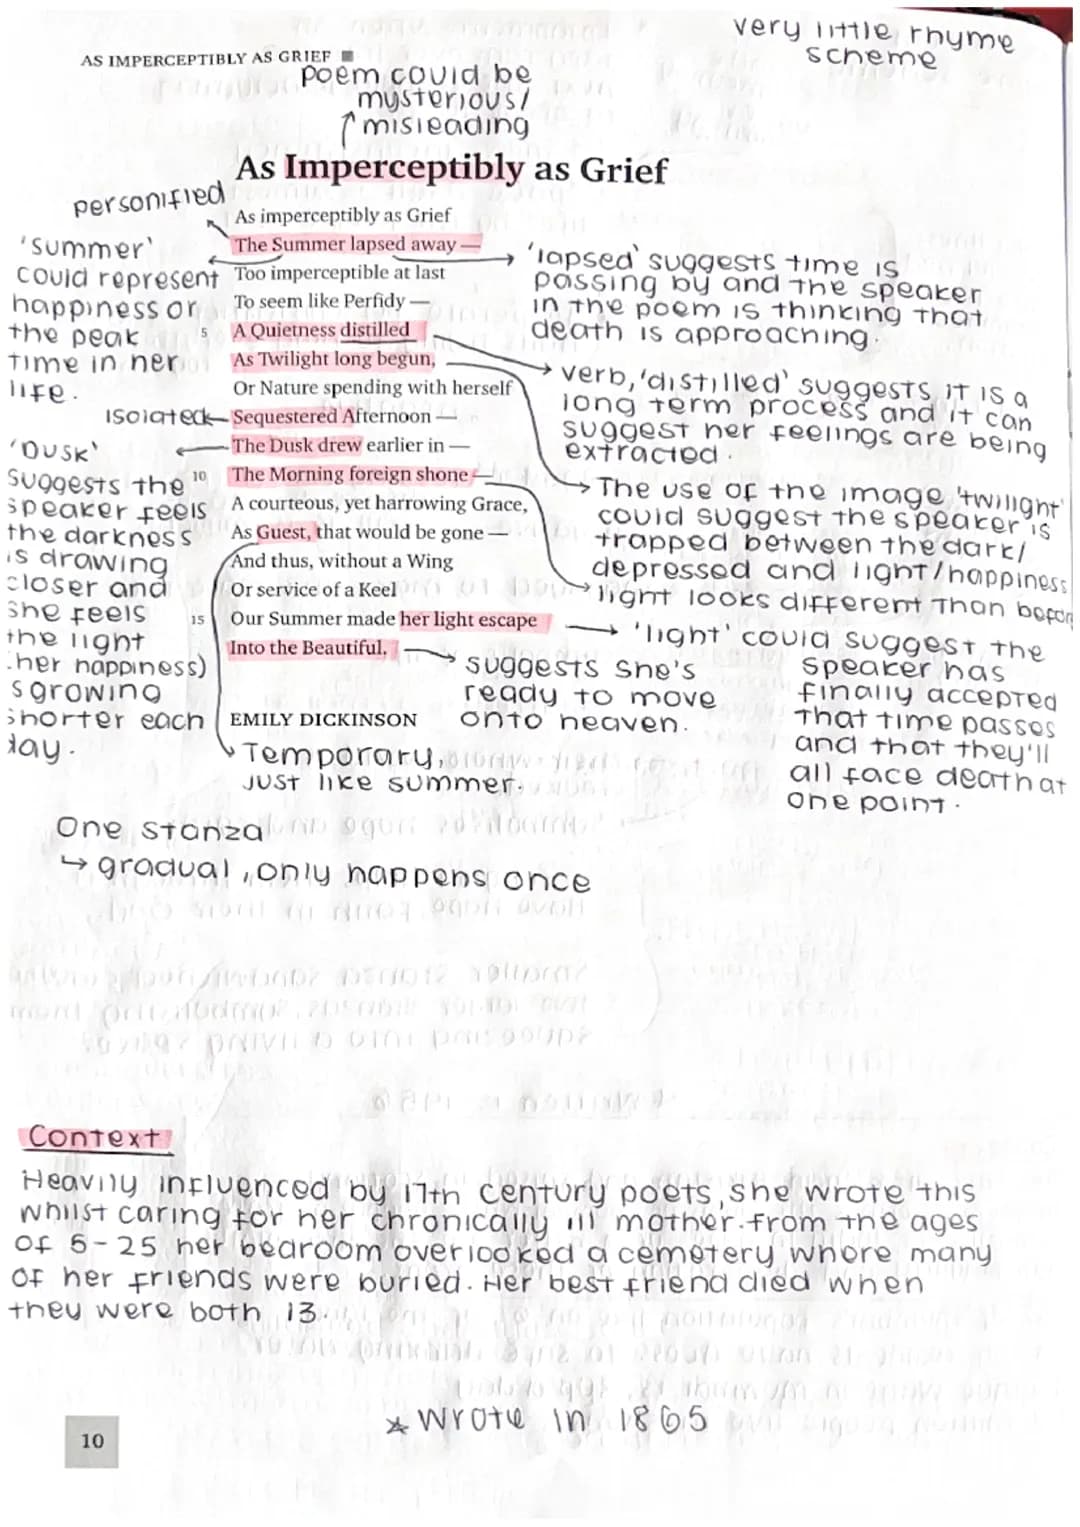 very little rhyme
scheme
AS IMPERCEPTIBLY AS GRIEF
poem could be
mysterious/
misleading
As Imperceptibly as Grief
personified
As imperceptibly as Grief
The Summer lapsed away —
Too imperceptible at last
To seem like Perfidy —
5 A Quietness distilled
As Twilight long begun,
Or Nature spending with herself
Sequestered Afternoon —
The Dusk drew earlier in —
10 The Morning foreign shone —
A courteous, yet harrowing Grace,
As Guest, that would be gone —
And thus, without a Wing
Or service of a Keel
15 Our Summer made her light escape
Into the Beautiful.
EMILY DICKINSON
'summer'
could represent
happiness or
the peak
time in her
life.
isolated
'Dusk'
suggests the
speaker feels
the darkness
is drawing
closer and
she feels
the light
(her happiness)
s growing
shorter each
day.
'lapsed' suggests time is
passing by and the speaker
in the poem is thinking that
death is approaching.
verb, 'distilled' suggests it is a
long term process and it can
suggest her feelings are being
extracted.
The use of the image 'twilight'
could suggest the speaker is
trapped between the dark/
depressed and light/happiness
light looks different than befor
'light' could suggest the
speaker has
finally accepted
that time passes
and that they'll
all face death at
one point.
suggests she's
ready to move
onto heaven.
Temporary,
just like summer.
One stanza
↳ gradual, only happens once
Context
Heavily influenced by 17th century poets, she wrote this
whilst caring for her chronically ill mother. from the ages
of 5-25 her bedroom overlooked a cemetery where many
of her friends were buried. Her best friend died when
they were both 13.
* Wrote in 1865
10